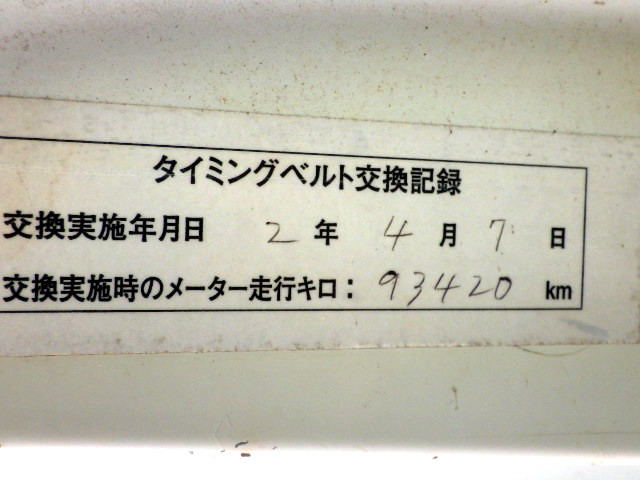 タイミングベルト交換記録
交換実施年月日 2 年 4 月 7 日
交換実施時のメーター走行キロ： 93420 km